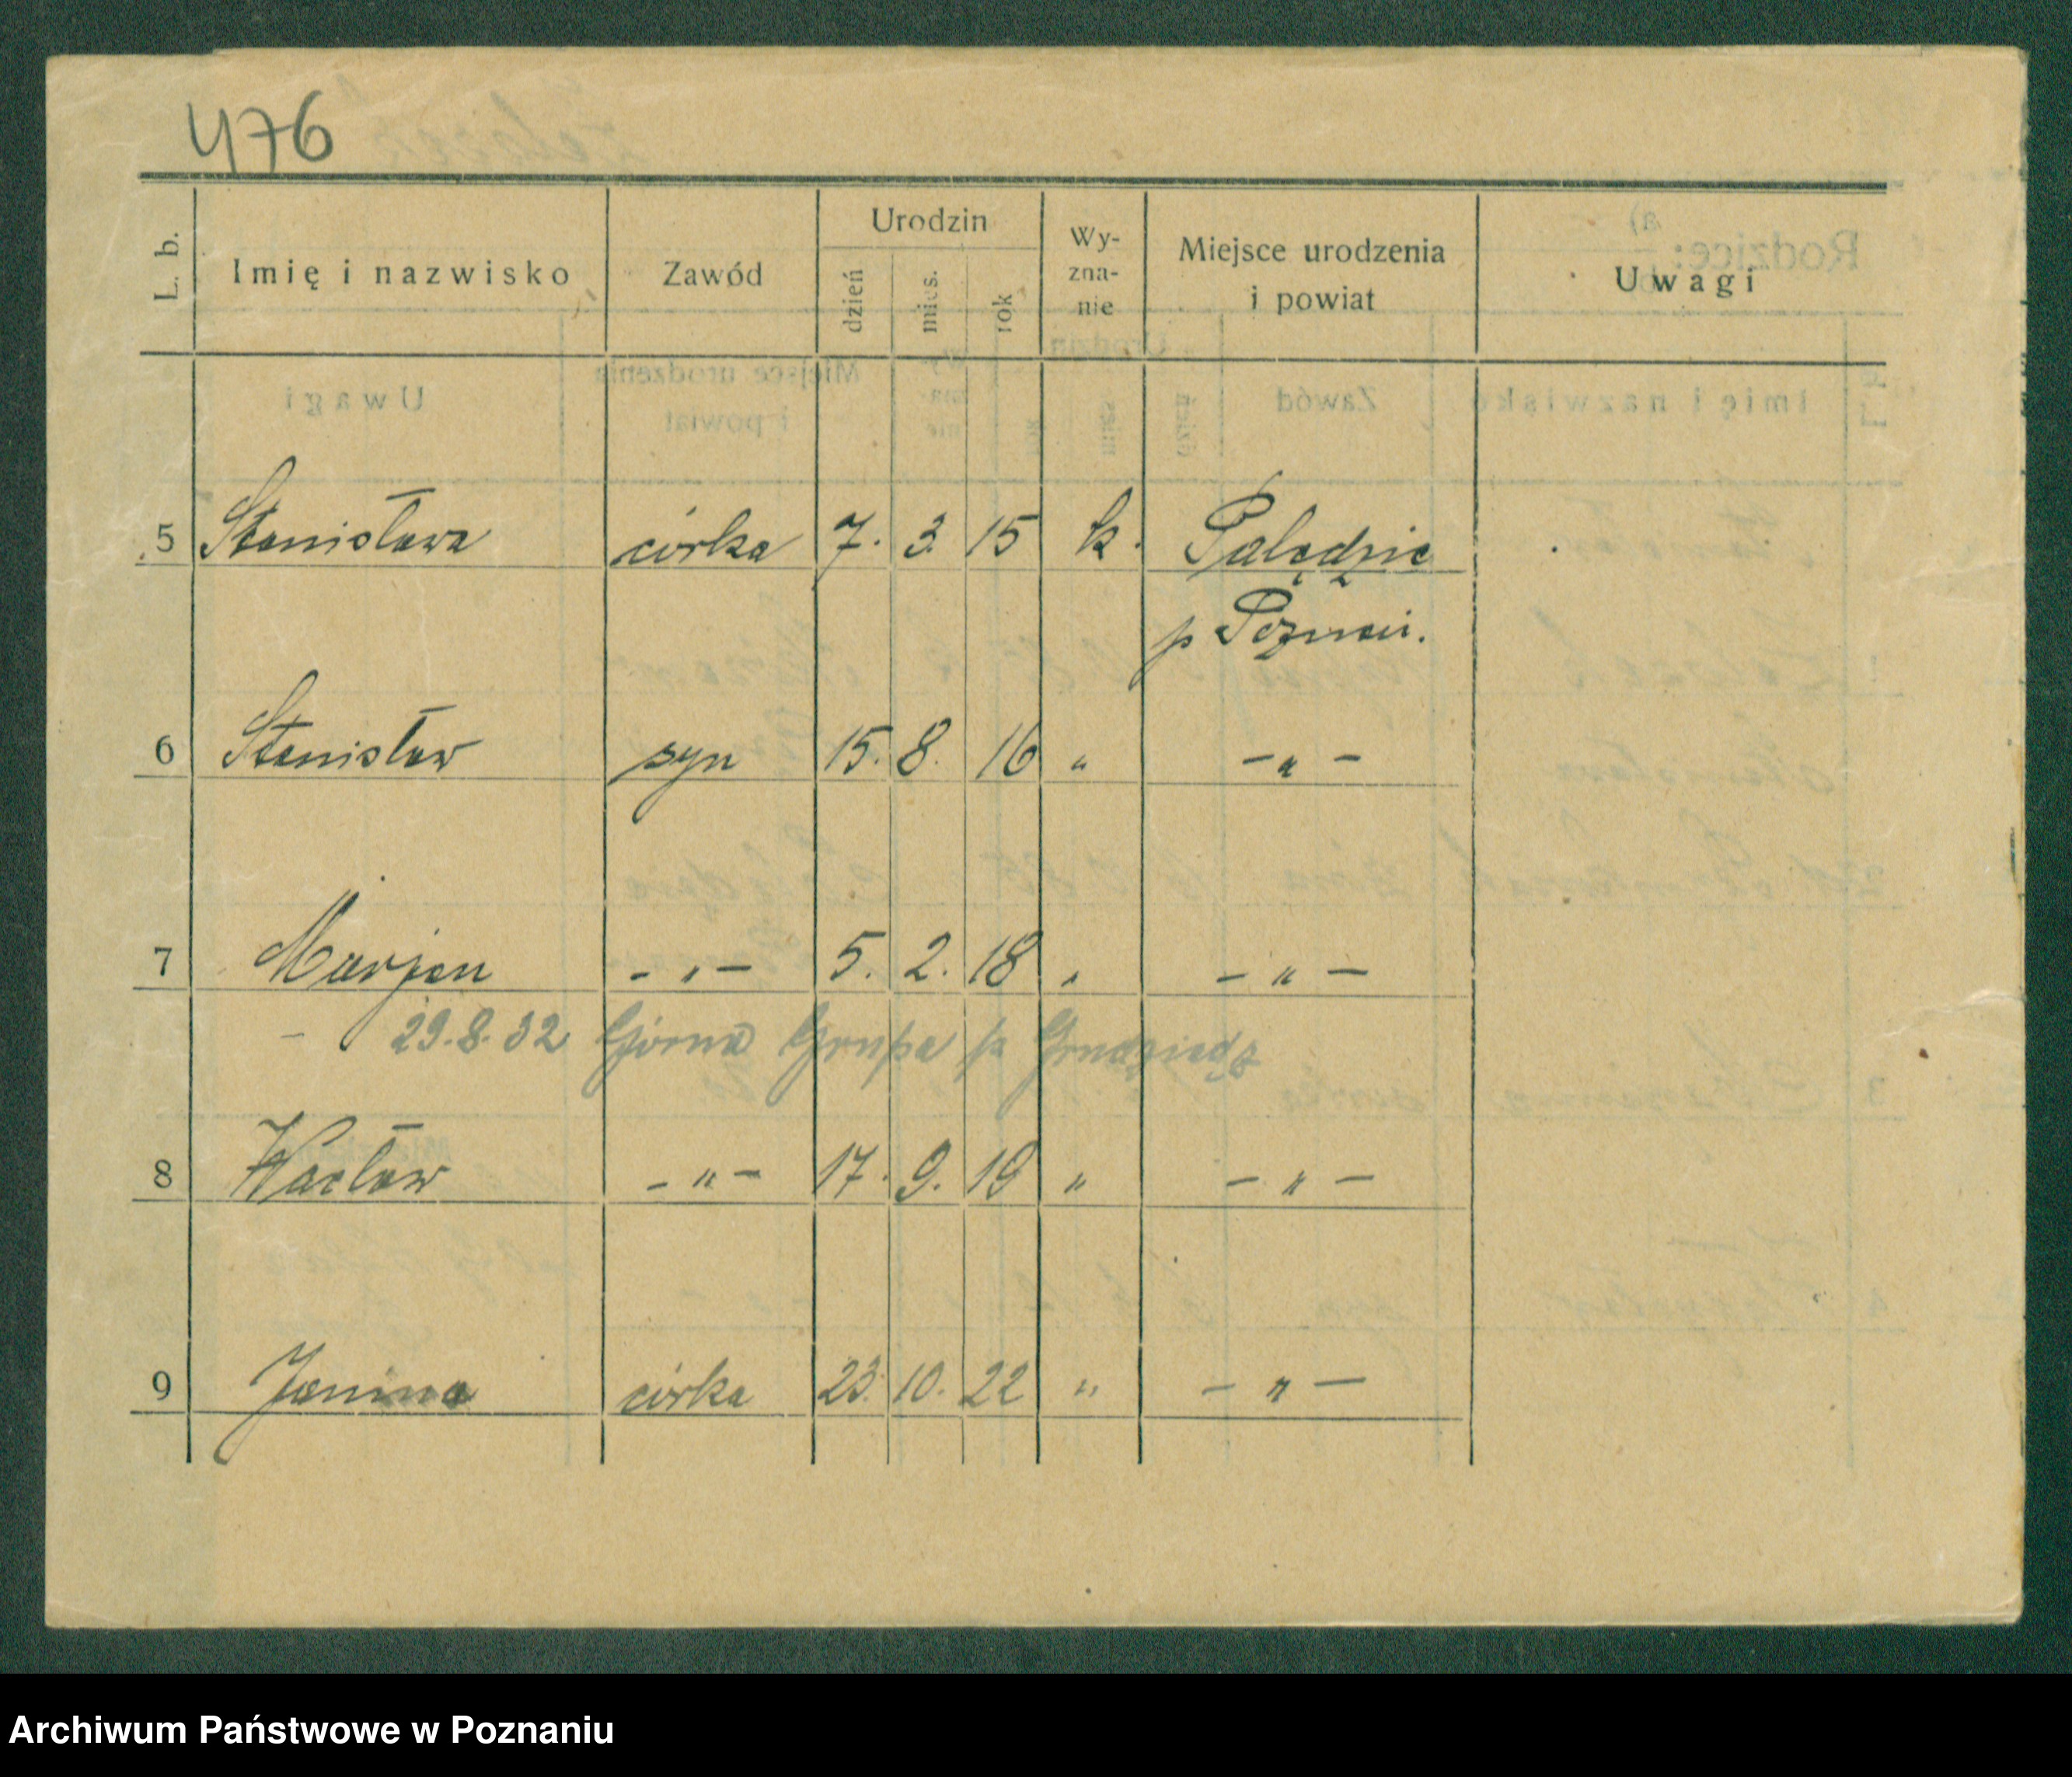 476
L. b. Imię i nazwisko Zawód Urodzin dzień mies. rok Wy-zna-nie Miejsce urodzenia i powiat Uwagi
5 Stanisława córka 7. 3. 15 k. Palędzie
p Poznań.
6 Stanisław syn 15. 8. 16 " - " -
7 Marjan - " - 5. 2. 18 " - " -
- 29.8.32 Górna Grupa p Grudziądz
8 Wacław - " - 17. 9. 19 " - " -
9 Janina córka 23. 10. 22 " - " -
Archiwum Państwowe w Poznaniu